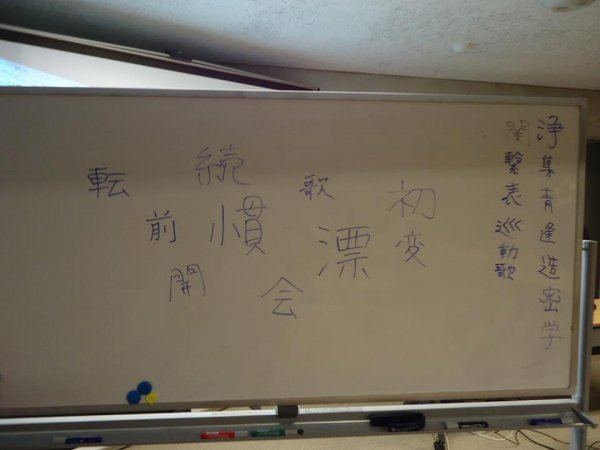 浄集青逢造密学
関繋表巡動歌
初変
歌漂
続慣会
前開
転